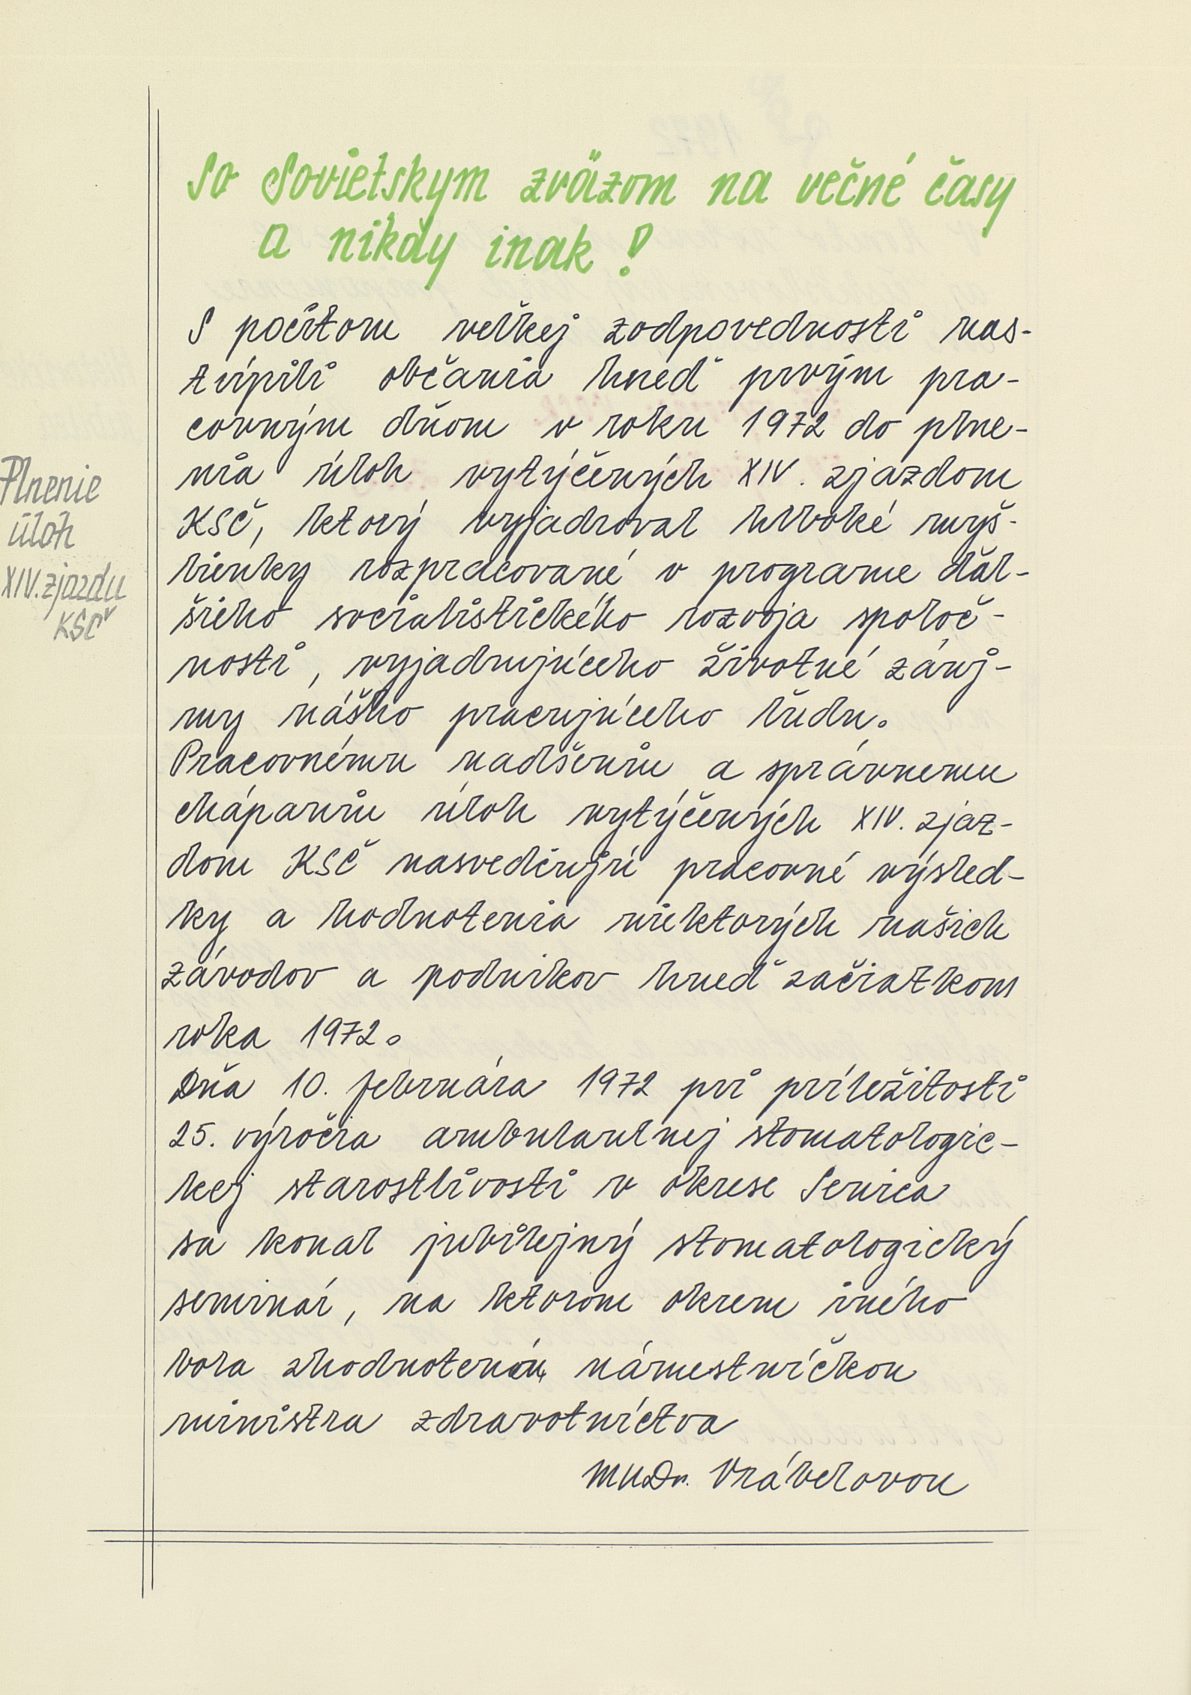 So Sovietskym zväzom na večné časy
a nikdy inak!
S pocitom veľkej zodpovednosti nas-
túpili občania hneď prvým pra-
covným dňom v roku 1972 do plne-
nia úloh vytýčených XIV. zjazdom
KSČ, ktorý vyjadroval hlboké myš-
lienky rozpracované v programe ďal-
šieho socialistického rozvoja spoloč-
nosti, vyjadrujúceho životné záuj-
my nášho pracujúceho ľudu.
Pracovnému nadšeniu a správnemu
chápaniu úloh vytýčených XIV. zjaz-
dom KSČ nasvedčujú pracovné výsled-
ky a hodnotenia niektorých našich
závodov a podnikov hneď začiatkom
roka 1972.
Dňa 10. februára 1972 pri príležitosti
25. výročia ambulantnej stomatologic-
kej starostlivosti v okrese Senica
sa konal jubilejný stomatologický
seminár, na ktorom okrem iného
bola zhodnotená námestníčkou
ministra zdravotníctva
MUDr. Vrábelovou
Plnenie
úloh
XIV. zjazdu
KSČ